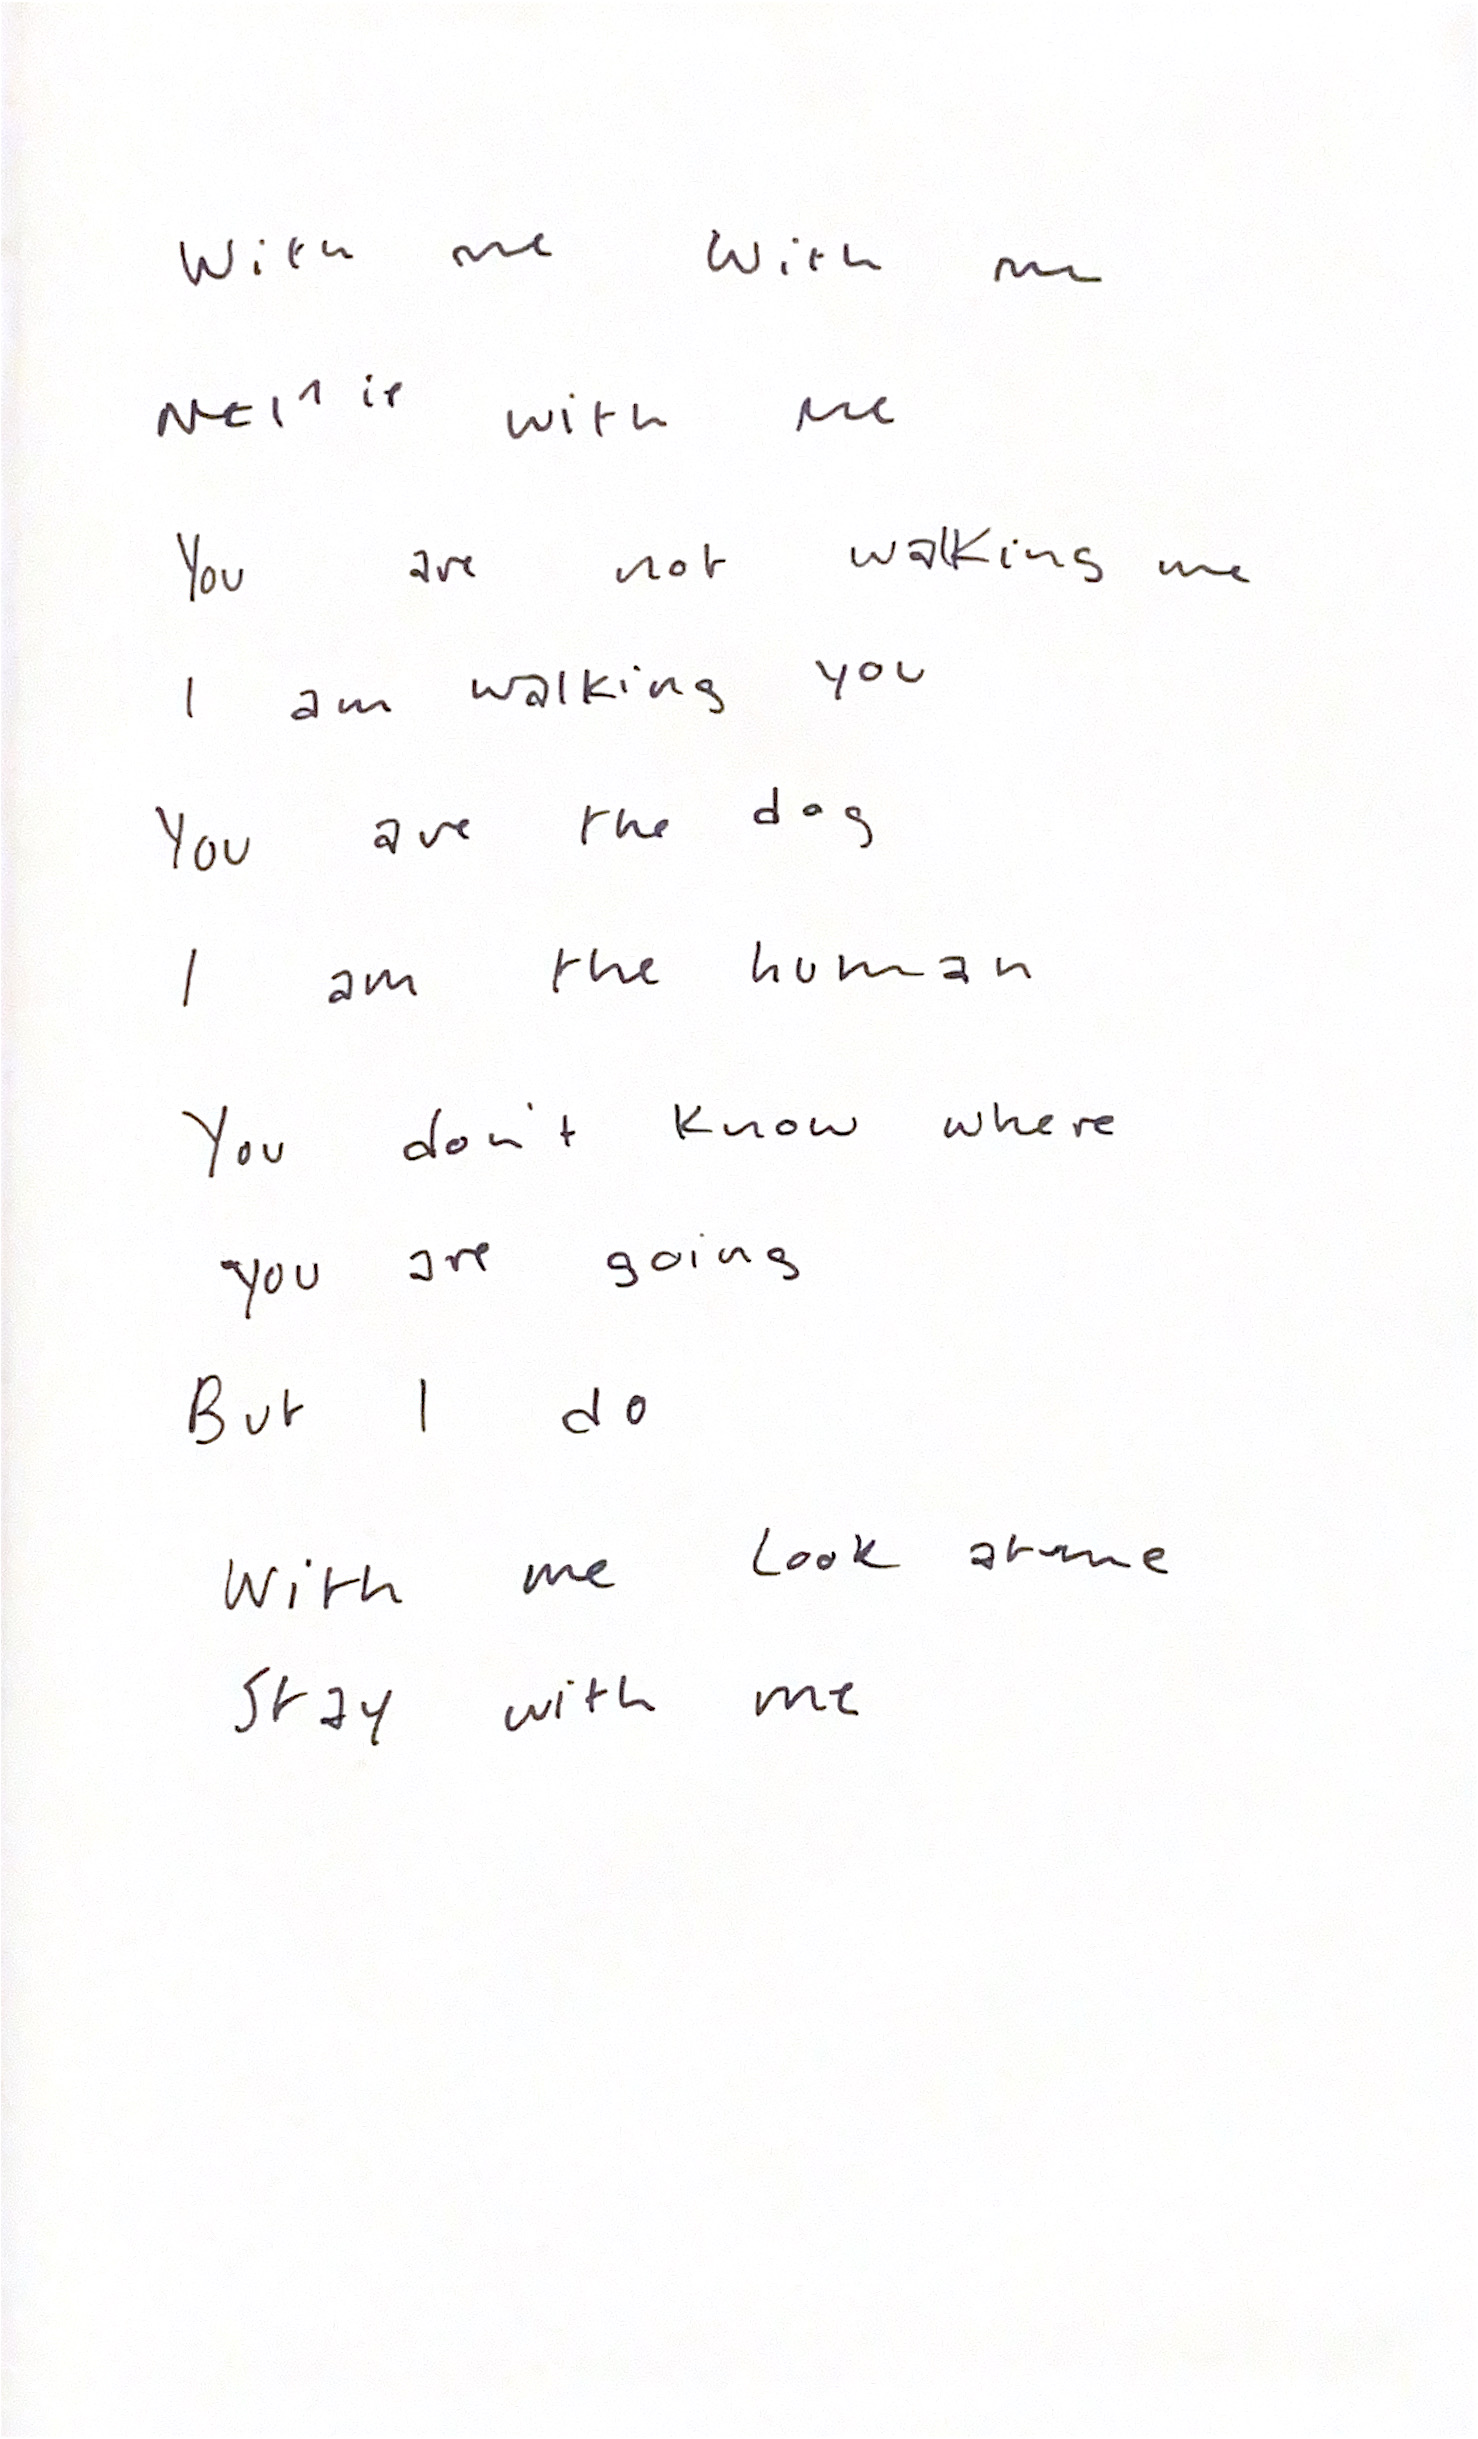 With me With me
Nellie with me
You are not walking me
I am walking you
You are the dog
I am the human
You don't know where
you are going
But I do
With me Look at me
Stay with me